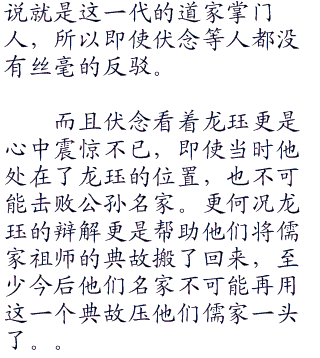 说就是这一代的道家掌门
人，所以即使伏念等人都没
有丝毫的反驳。
而且伏念看着龙珏更是
心中震惊不已，即使当时他
处在了龙珏的位置，也不可
能击败公孙名家。更何况龙
珏的辩解更是帮助他们将儒
家祖师的典故搬了回来，至
少今后他们名家不可能再用
这一个典故压他们儒家一头
了。。